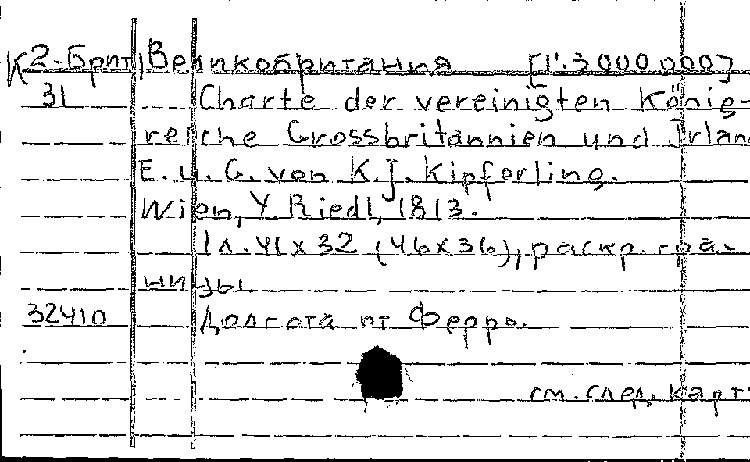 К2-Брит Великобритания [1:3 000 000]
31 Charte der vereinigten König-
reiche Grossbritannien und Irlan
E. u. G. von K. J. Kipferling.
Wien, Y. Riedl, 1813.
1 л. 41 x 32 (46 x 36), раскр. гра-
ницы.
32410 Долгота от Ферро.
см. след. карт